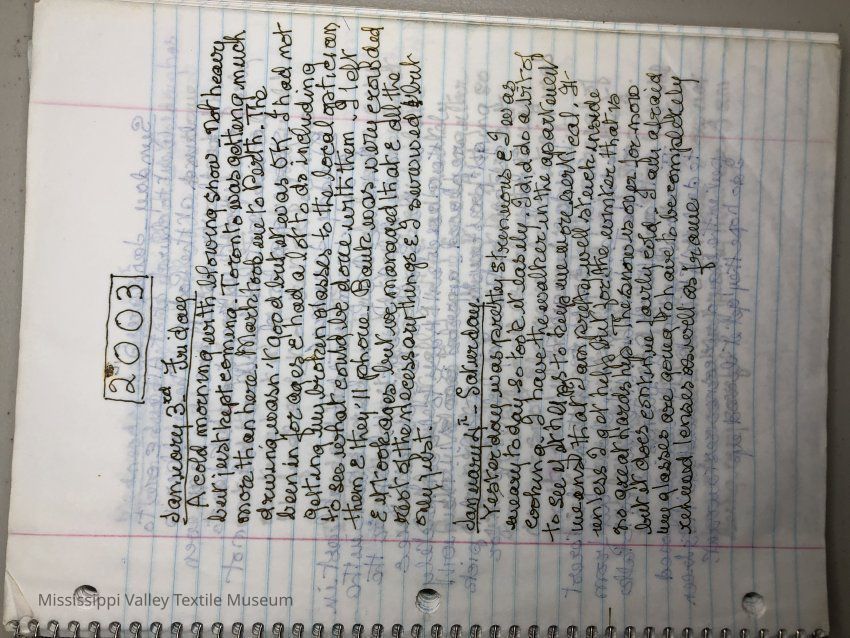 2003
January 3rd Friday
A cold morning with blowing snow. Not heavy
but just kept coming. Toronto was getting much
more than here. Mark took me to Perth. The
driving wasn't good but it was OK. I had not
been in for ages & had a lot to do including
getting my broken glasses to the local optician
to see what could be done with them. I left
them & they'll phone. Bank was very crowded
& it took ages but we managed that & all the
rest of the necessary things & I survived & but
only just.
January 4th - Saturday
Yesterday was pretty strenuous & I was
weary today so took it easily. I did do a bit of
cooking. I have the walker in the apartment
to see if it helps to keep me more vertical. It
means that I am pretty well stuck inside
unless I get help but for the winter that is
no great hardship. The snow is over for now
but it does continue fairly cold. I am afraid
my glasses are going to have to be completely
renewed lenses as well as frame.
Mississippi Valley Textile Museum